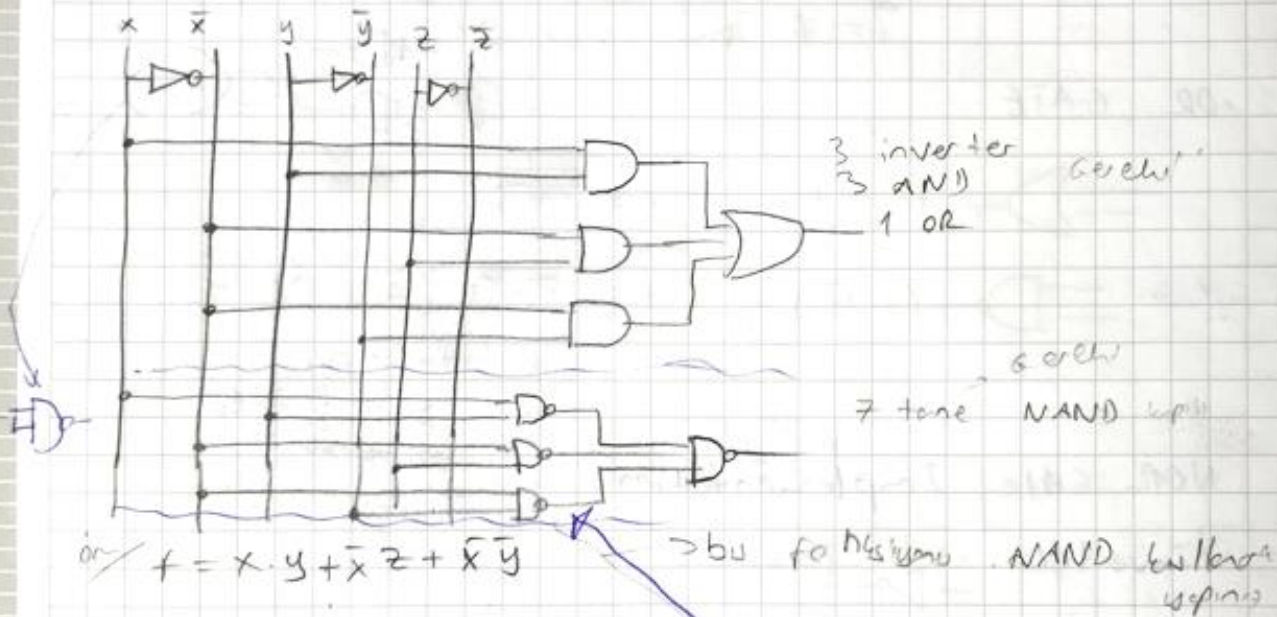 x x̄ y ȳ z z̄
3 inverter
3 AND gerekli
1 OR
gerekli
7 tane NAND kapısı
ör/ f = x·y + x̄ z + x̄ ȳ
→ bu fonksiyonu NAND kullanarak
yapınız